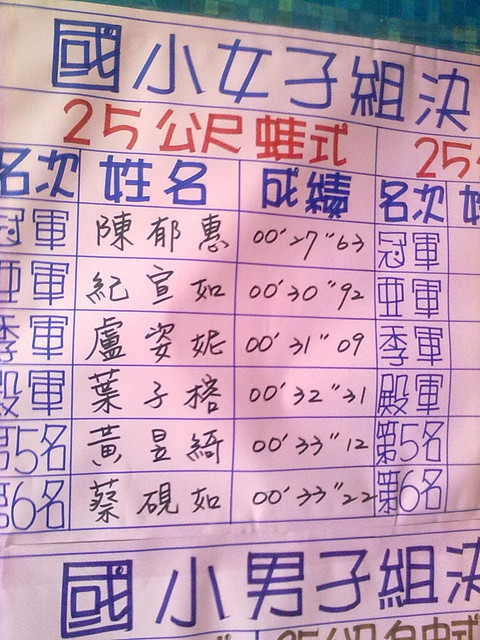 國小女子組決
25公尺蛙式 25
名次 姓名 成績 名次 姓
冠軍 陳郁惠 00'27"63 冠軍
亞軍 紀宣如 00'30"92 亞軍
季軍 盧姿妮 00'31"09 季軍
殿軍 葉子榕 00'32"31 殿軍
第5名 黃昱綺 00'33"12 第5名
第6名 蔡硯如 00'33"22 第6名
國小男子組決
25公尺自由式